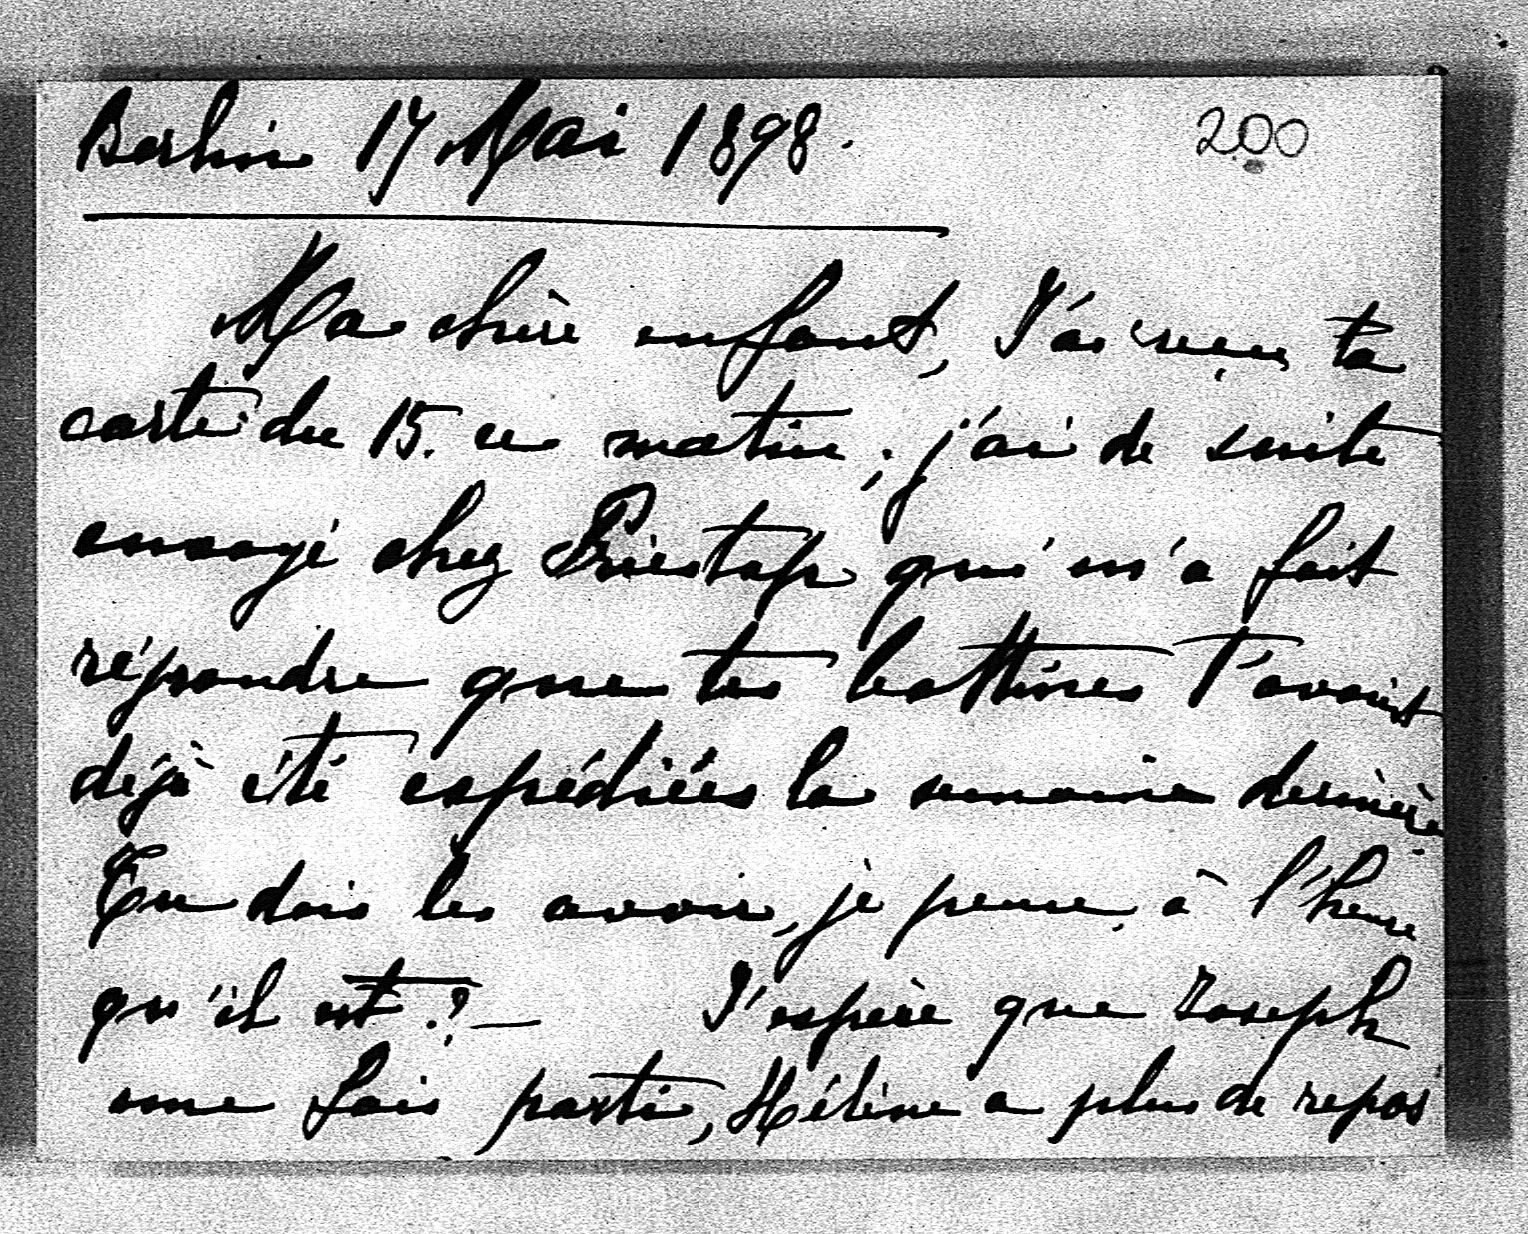 Berlin 17 Mai 1898.
200
Ma chère enfant, J'ai reçu ta
carte du 15. ce matin; j'ai de suite
envoyé chez Priestap qui m'a fait
répondre que tes bottines t'avaient
déjà été expédiées la semaine dernière.
Tu dois les avoir, je pense, à l'heure
qu'il est? — J'espère que Joseph
une fois parti, Hélène a plus de repos